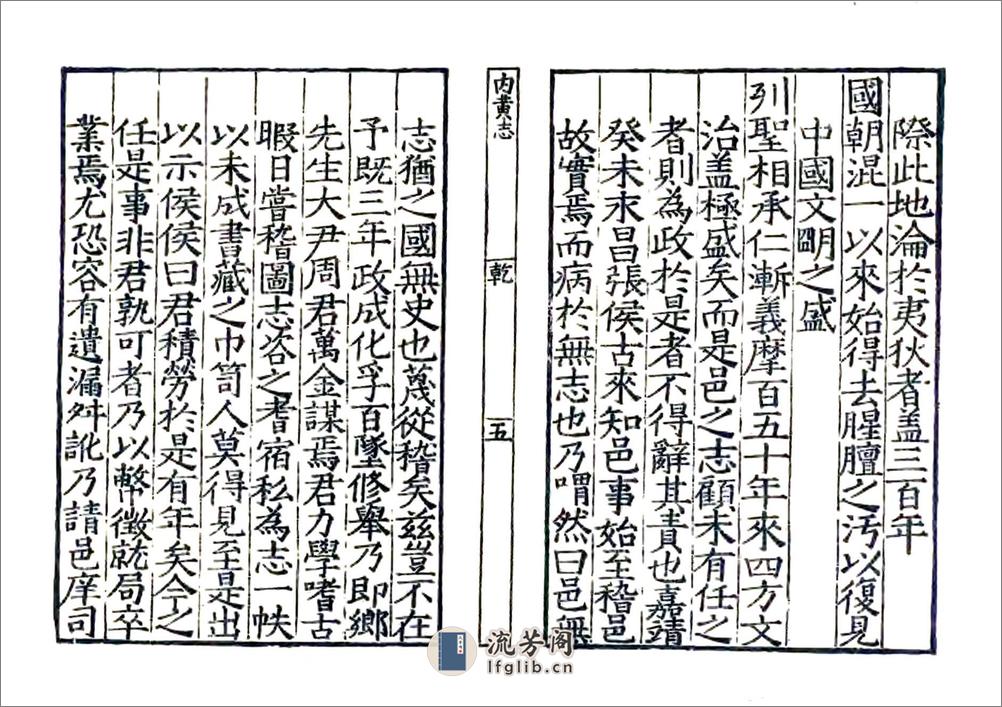 際此地淪於夷狄者盖三百年
國朝混一以來始得去腥膻之汚以復見
中國文明之盛
列聖相承仁漸義摩百五十年來四方文
治盖極盛矣而是邑之志顧未有任之
者則為政於是者不得辭其責也嘉靖
癸未求昌張侯古來知邑事始至稽邑
故實焉而病於無志也乃喟然曰邑無
内黄志
乾
五
志猶之國無史也蔑從稽矣兹豈不在
予既三年政成化孚百墜修舉乃即鄉
先生大尹周君萬金謀焉君力學嗜古
暇日嘗稽圖志咨之耆宿私為志一帙
以未成書藏之巾笥人莫得見至是出
以示侯侯曰君積勞於是有年矣今之
任是事非君孰可者乃以幣徵就局卒
業焉尤恐容有遺漏舛訛乃請邑庠司
流芳阁
lfglib.cn